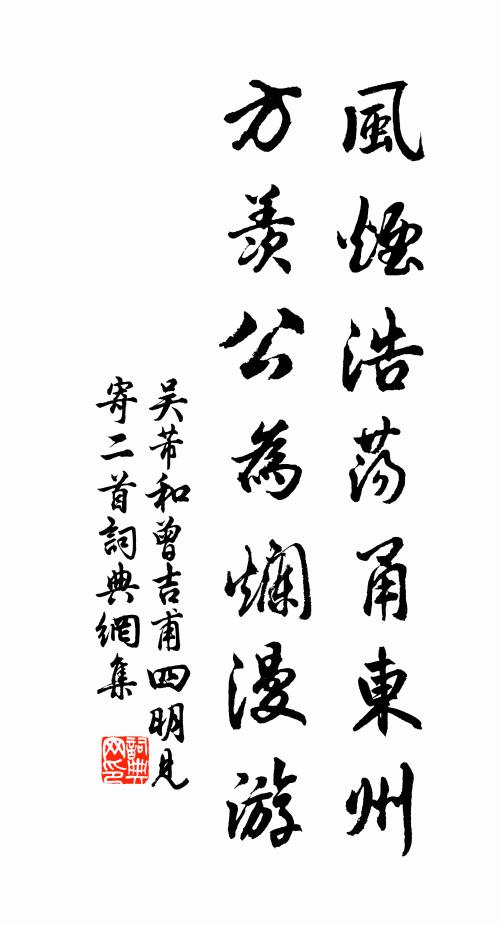 風煙浩蕩甬東州
方羨公為爛漫游
吳芾和曾吉甫四明見
寄二首詞典網集
詞典網印